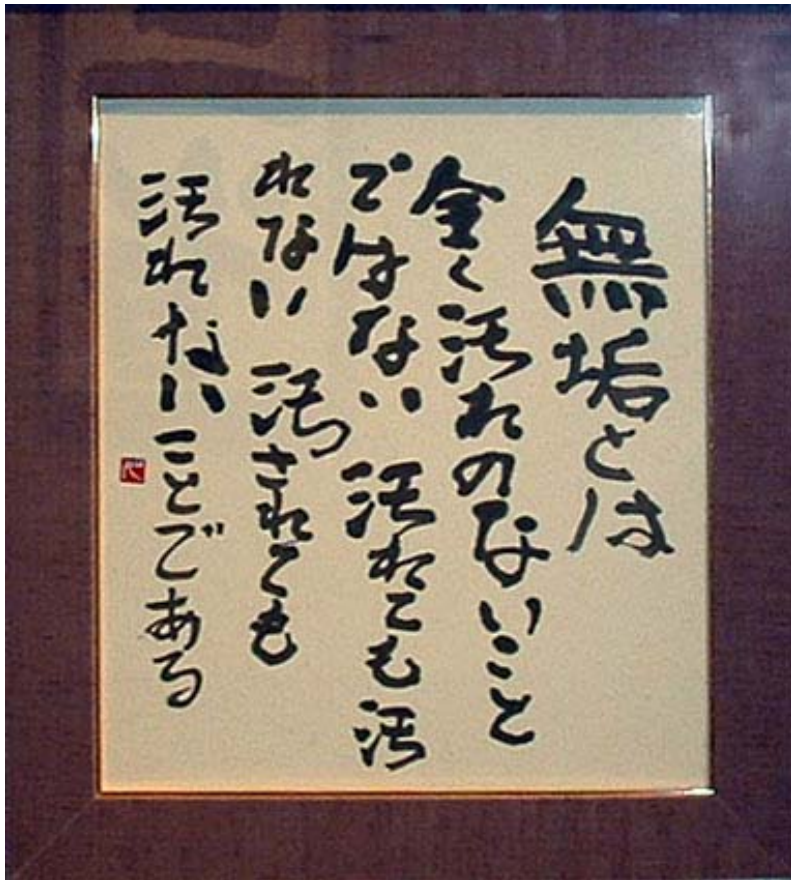 無垢とは
全く汚れのないこと
ではない 汚れても汚
れない 汚されても
汚れないことである